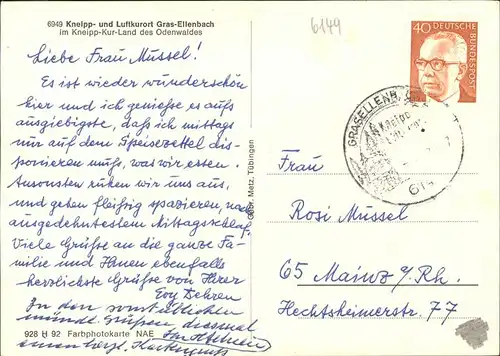 6949 Kneipp- und Luftkurort Gras-Ellenbach
im Kneipp-Kur-Land des Odenwaldes
6149
40 DEUTSCHE BUNDESPOST
Liebe Frau Mussel!
Es ist wieder wunderschön
hier und ich genieße es aufs
ausgiebigste, daß ich mittags
nur auf dem Speisezettel dis-
ponieren muß, was wir essen.
Ansonsten ruhen wir uns aus,
und gehen fleißig spazieren, nach
ausgedehntestem Mittagsschlaf.
Viele Grüße an die ganze Fa-
milie und Ihnen ebenfalls
herzlichste Grüße von Ihrer
In den
mündl. Grüßen diesmal
einen herzl.
GRASELLENB
Kneipp
614
Gebr. Metz, Tübingen
Frau
Rosi Mussel
65 Mainz/Rh.
Hechtsheimerstr. 77
928 H 92 Farbphotokarte NAE